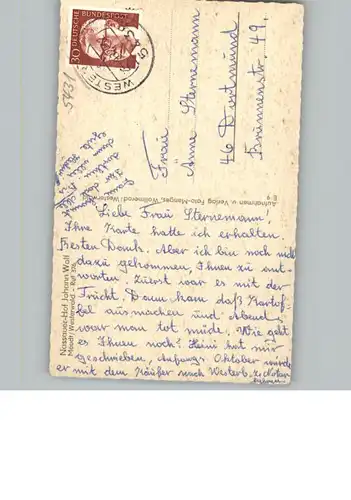 30
DEUTSCHE
BUNDESPOST
WESTER
5431
Frau
Änne Sternemann
46 Dortmund
Brunnenstr. 49.
Aufnahmen u. Verlag Foto-Manges, Wollmerod/Westerw.
E 9
Nassauer-Hof Johann Woll
Moscht/Westerwald - Ruf 376
Liebe Frau Sternemann!
Ihre Karte hatte ich erhalten.
Besten Dank. Aber ich bin noch nicht
dazu gekommen, Ihnen zu ant-
worten. Zuerst war es mit der
Frücht. Dann kam daß Kartof-
fel ausmachen und Abends
war man tot müde. Wie geht
es Ihnen noch? Heini hat mir
geschrieben, Anfangs Oktober würde
er mit dem Käufer nach Westerb. z. Notar